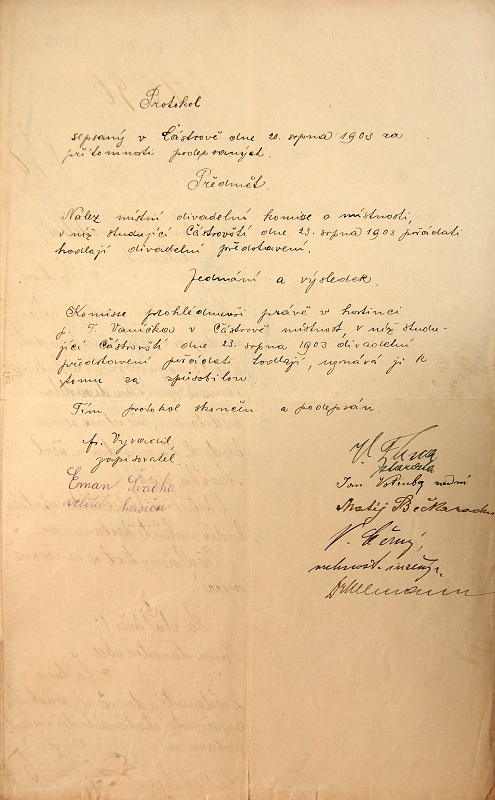 Protokol
sepsaný v Částrově dne 20. srpna 1903 za
přítomnosti podepsaných.
Předmět.
Nález místní divadelní komise o místnosti,
v níž studující Částrovští dne 23. srpna 1903 pořádati
hodlají divadelní představení.
Jednání a výsledek.
Komisse prohlédnuvši právě v hostinci
p. T. Vaníčka v Částrově místnost, v níž studu-
jící Částrovští dne 23. srpna 1903 divadelní
představení pořádati hodlají, uznává ji k
tomu za způsobilou
Tím protokol skončen a podepsán.
fr. Vyvadil,
zapisovatel.
Eman Švácha
velitel hasičů
starosta
Jan Votruba radní
Matěj Bečka radní
V. Černý,
Dr Ullmann